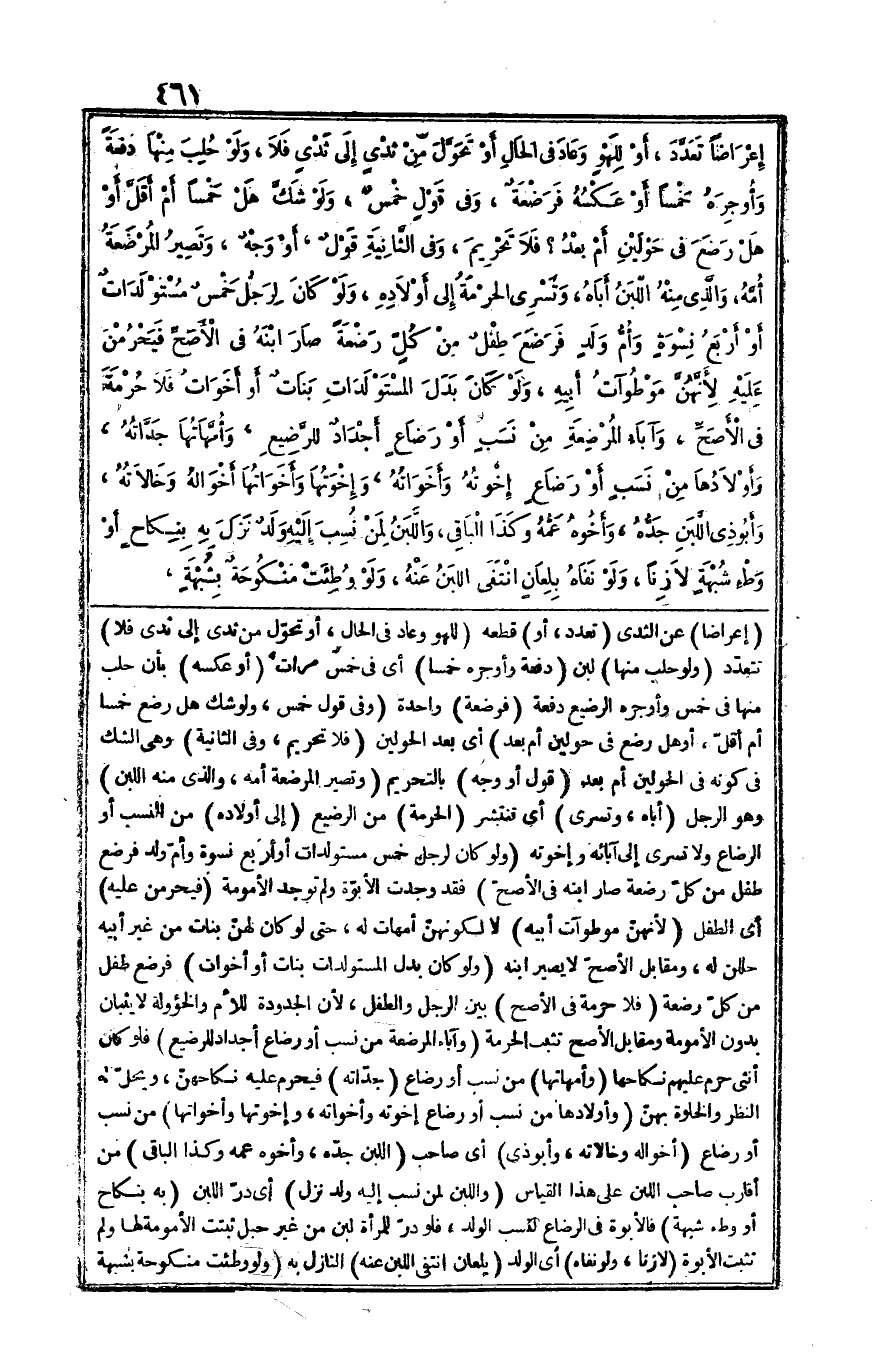 ٤٦١
إِعْرَاضاً تَعَدَّدَ ، أَوْ لِلَّهْوِ وَعَادَ فِى الحَالِ أَوْ تَحَوَّلَ مِّنْ ثَدْيٍ إِلَى ثَدْيٍ فَلَا ، وَلَوْ حُلِبَ مِنْهَا دَفْعَةً
وَأُوجِرَهُ خَمْساً أَوْ عَكْسُهُ فَرَضْعَةٌ ، وَفى قَوْلٍ خَمْسٌ ، وَلَوْ شَكَّ هَلْ خَمْساً أَمْ أَقَلَّ أَوْ
هَلْ رَضَعَ فى حَوْلَيْنِ أَمْ بَعْدُ ؟ فَلَا تَحْرِيمَ ، وَفى الثَّانِيَةِ قَوْلٌ ، أَوْ وَجْهٌ ، وَتَصِيرُ المُرْضِعَةُ
أُمَّهُ، وَالَّذِى مِنْهُ اللَّبَنُ أَبَاهُ، وَتَسْرِى الحُرْمَةُ إِلَى أَوْلَادِهِ ، وَلَوْ كَانَ لِرَجُلٍ خَمْسُ مُسْتَوْلَدَاتٍ
أَوْ أَرْبَعُ نِسْوَةٍ وَأُمُّ وَلَدٍ فَرَضَعَ طِفْلٌ مِنْ كُلٍّ رَضْعَةً صَارَ ابْنَهُ فى الْأَصَحِّ فَيَحْرُمْنَ
عَلَيْهِ لِأَنَّهُنَّ مَوْطُوآتُ أَبِيهِ ، وَلَوْ كَانَ بَدَلَ المُسْتَوْلَدَاتِ بَنَاتٌ أَوْ أَخَوَاتٌ فَلَا حُرْمَةَ
فى الْأَصَحِّ ، وَآبَاءُ المُرْضِعَةِ مِنْ نَسَبٍ أَوْ رَضَاعٍ أَجْدَادٌ لِلرَّضِيعِ ، وَأُمَّهَاتُهَا جَدَّاتُهُ ،
وَأَوْلَادُهَا مِنْ نَسَبٍ أَوْ رَضَاعٍ إِخْوَتُهُ وَأَخَوَاتُهُ ، وَإِخْوَتُهَا وَأَخَوَاتُهَا أَخْوَالُهُ وَخَالَاتُهُ ،
وَأَبُو ذِى اللَّبَنِ جَدُّهُ ، وَأَخُوهُ عَمُّهُ وَكَذَا الْبَاقِى، وَاللَّبَنُ لِمَنْ نُسِبَ إِلَيْهِ وَلَدٌ نَزَلَ بِهِ بِنِكَاحٍ أَوْ
وَطْءِ شُبْهَةٍ لَا زِنًا ، وَلَوْ نَفَاهُ بِلِعَانٍ انْتَفَى اللبَنُ عَنْهُ ، وَلَوْ وُطِئَتْ مَنْكُوحَةٌ بِشُبْهَةٍ ،
( إعراضا ) عن الثدى ( تعدد ، أو ) قطعه ( للهو وعاد فى الحال ، أو تحوّل من ثدى إلى ثدى فلا )
تتعدّد ( ولو حلب منها ) لبن ( دفعة وأوجره خمسا ) أى فى خمس مرات ( أو عكسه ) بأن حلب
منها فى خمس وأوجره الرضيع دفعة ( فرضعة ) واحدة ( وفى قول خمس ، ولو شك هل رضع خمسا
أم أقلّ ، أو هل رضع فى حولين أم بعد ) أى بعد الحولين ( فلا تحريم ، وفى الثانية ) وهى الشك
فى كونه فى الحولين أم بعد ( قول أو وجه ) بالتحريم ( وتصير المرضعة أمه ، والذى منه اللبن )
وهو الرجل ( أباه ، وتسرى ) أى تنتشر ( الحرمة ) من الرضيع ( إلى أولاده ) من النسب أو
الرضاع ولا تسرى إلى آبائه وإخوته ( ولو كان لرجل خمس مستولدات أو أربع نسوة وأم ولد فرضع
طفل من كلّ رضعة صار ابنه فى الأصحّ ) فقد وجدت الأبوّة ولم توجد الأمومة ( فيحرمن عليه )
أى الطفل ( لأنهنّ موطوآت أبيه ) لا لكونهنّ أمهات له ، حتى لو كان لهنّ بنات من غير أبيه
حللن له ، ومقابل الأصحّ لا يصير ابنه ( ولو كان بدل المستولدات بنات أو أخوات ) فرضع طفل
من كلّ رضعة ( فلا حرمة فى الأصح ) بين الرجل والطفل ، لأن الجدودة للأم والخؤولة لا يثبتان
بدون الأمومة ومقابل الأصح تثبت الحرمة ( وآباء المرضعة من نسب أو رضاع أجداد للرضيع ) فلو كان
أنثى حرم عليهم نكاحها ( وأمهاتها ) من نسب أو رضاع ( جدّاته ) فيحرم عليه نكاحهنّ ، ويحلّ له
النظر والخلوة بهنّ ( وأولادها من نسب أو رضاع إخوته وأخواته ، وإخوتها وأخواتها ) من نسب
أو رضاع ( أخواله وخالاته ، وأبو ذى ) أى صاحب ( اللبن جدّه ، وأخوه عمه وكذا الباقى ) من
أقارب صاحب اللبن على هذا القياس ( واللبن لمن نسب إليه ولد نزل ) أى درّ اللبن ( به بنكاح
أو وطء شبهة ) فالأبوة فى الرضاع كنسب الولد ، فلو درّ للمرأة لبن من غير حبل ثبتت الأمومة لها ولم
تثبت الأبوة ( لا زنا ، ولو نفاه ) أى الولد ( بلعان انتفى اللبن عنه ) النازل به ( ولو وطئت منكوحة بشبهة